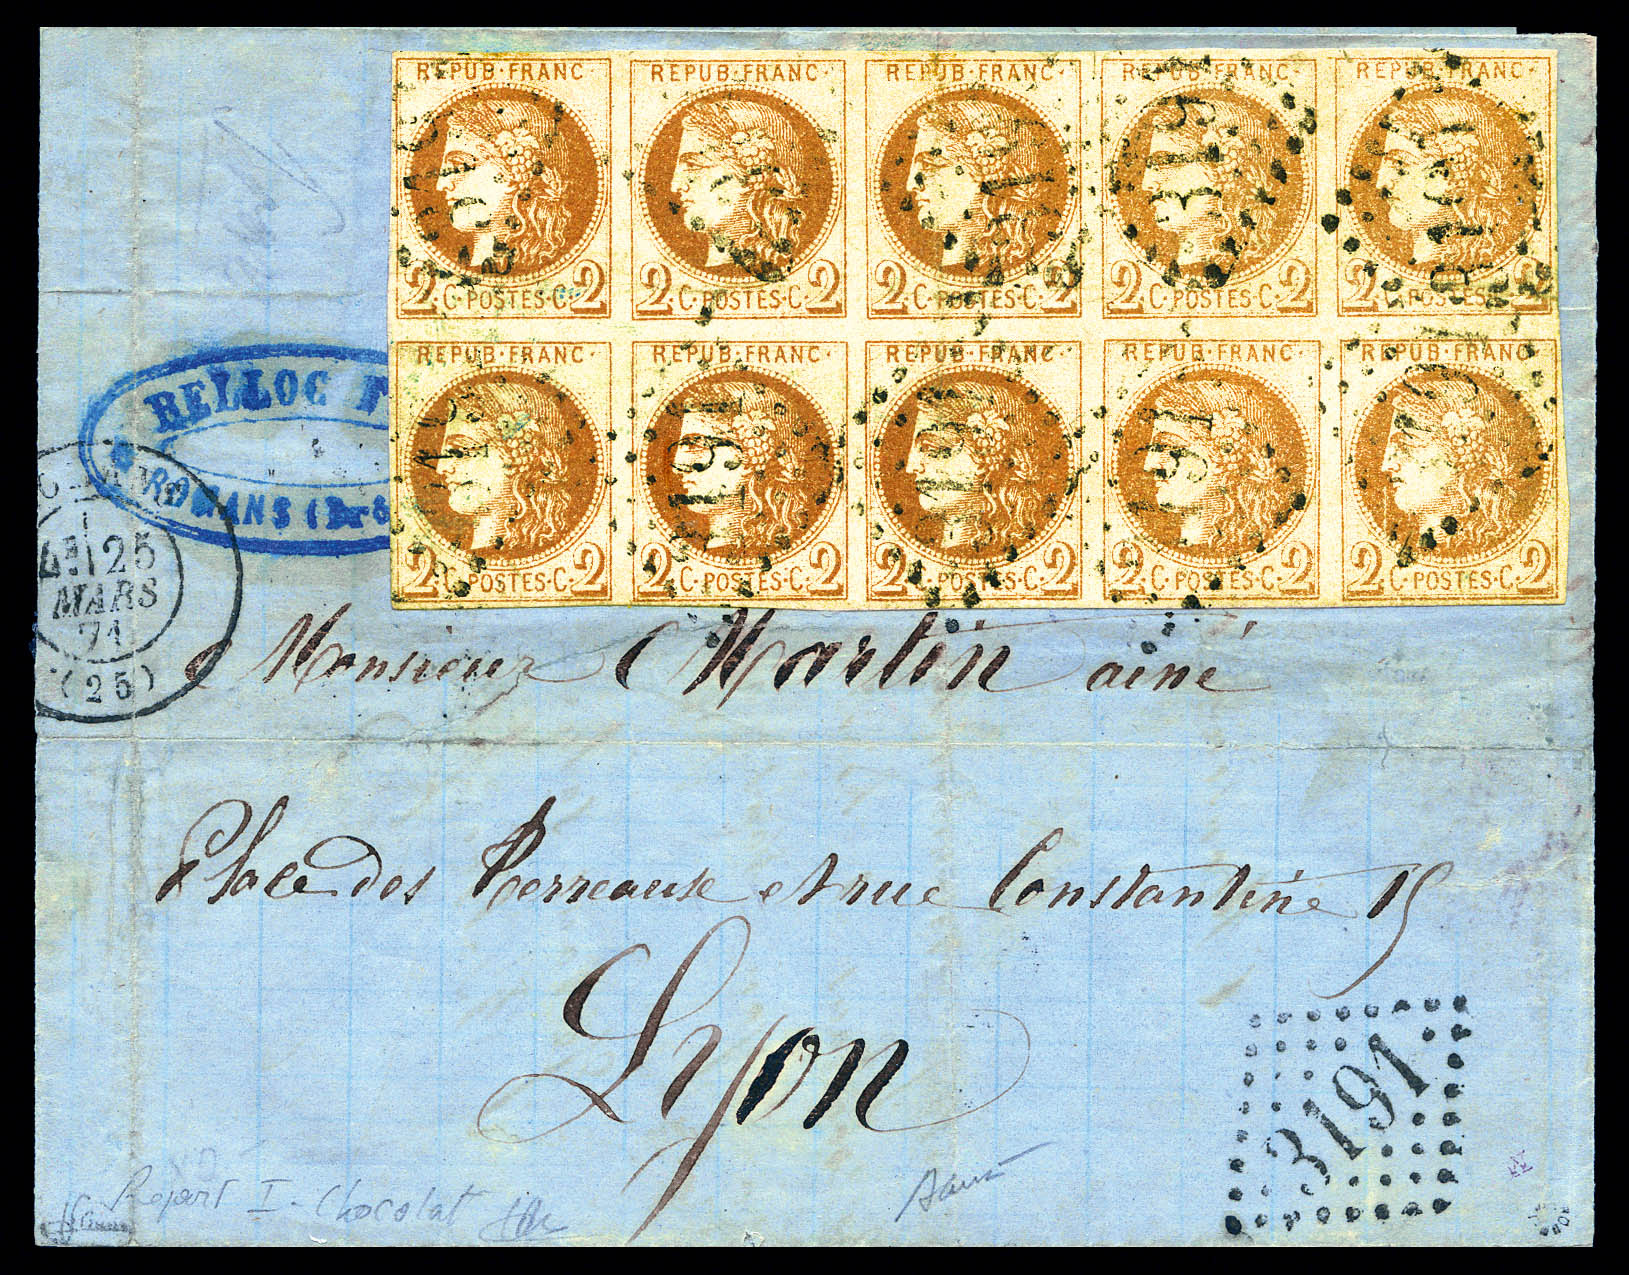 REPUB·FRANC· REPUB·FRANC· REPUB·FRANC· REPUB·FRANC· REPUB·FRANC·
2 C·POSTES·C· 2 2 C·POSTES·C· 2 2 C·POSTES·C· 2 2 C·POSTES·C· 2 2 C·POSTES·C· 2
REPUB·FRANC· REPUB·FRANC· REPUB·FRANC· REPUB·FRANC· REPUB·FRANC·
2 C·POSTES·C· 2 2 C·POSTES·C· 2 2 C·POSTES·C· 2 2 C·POSTES·C· 2 2 C·POSTES·C· 2
BELLOC F
ROMANS (
25
MARS
71
(25)
Monsieur Martin ainé
Place des Terreaux et rue Constantine 15
Lyon
3191
Report I - Chocolat